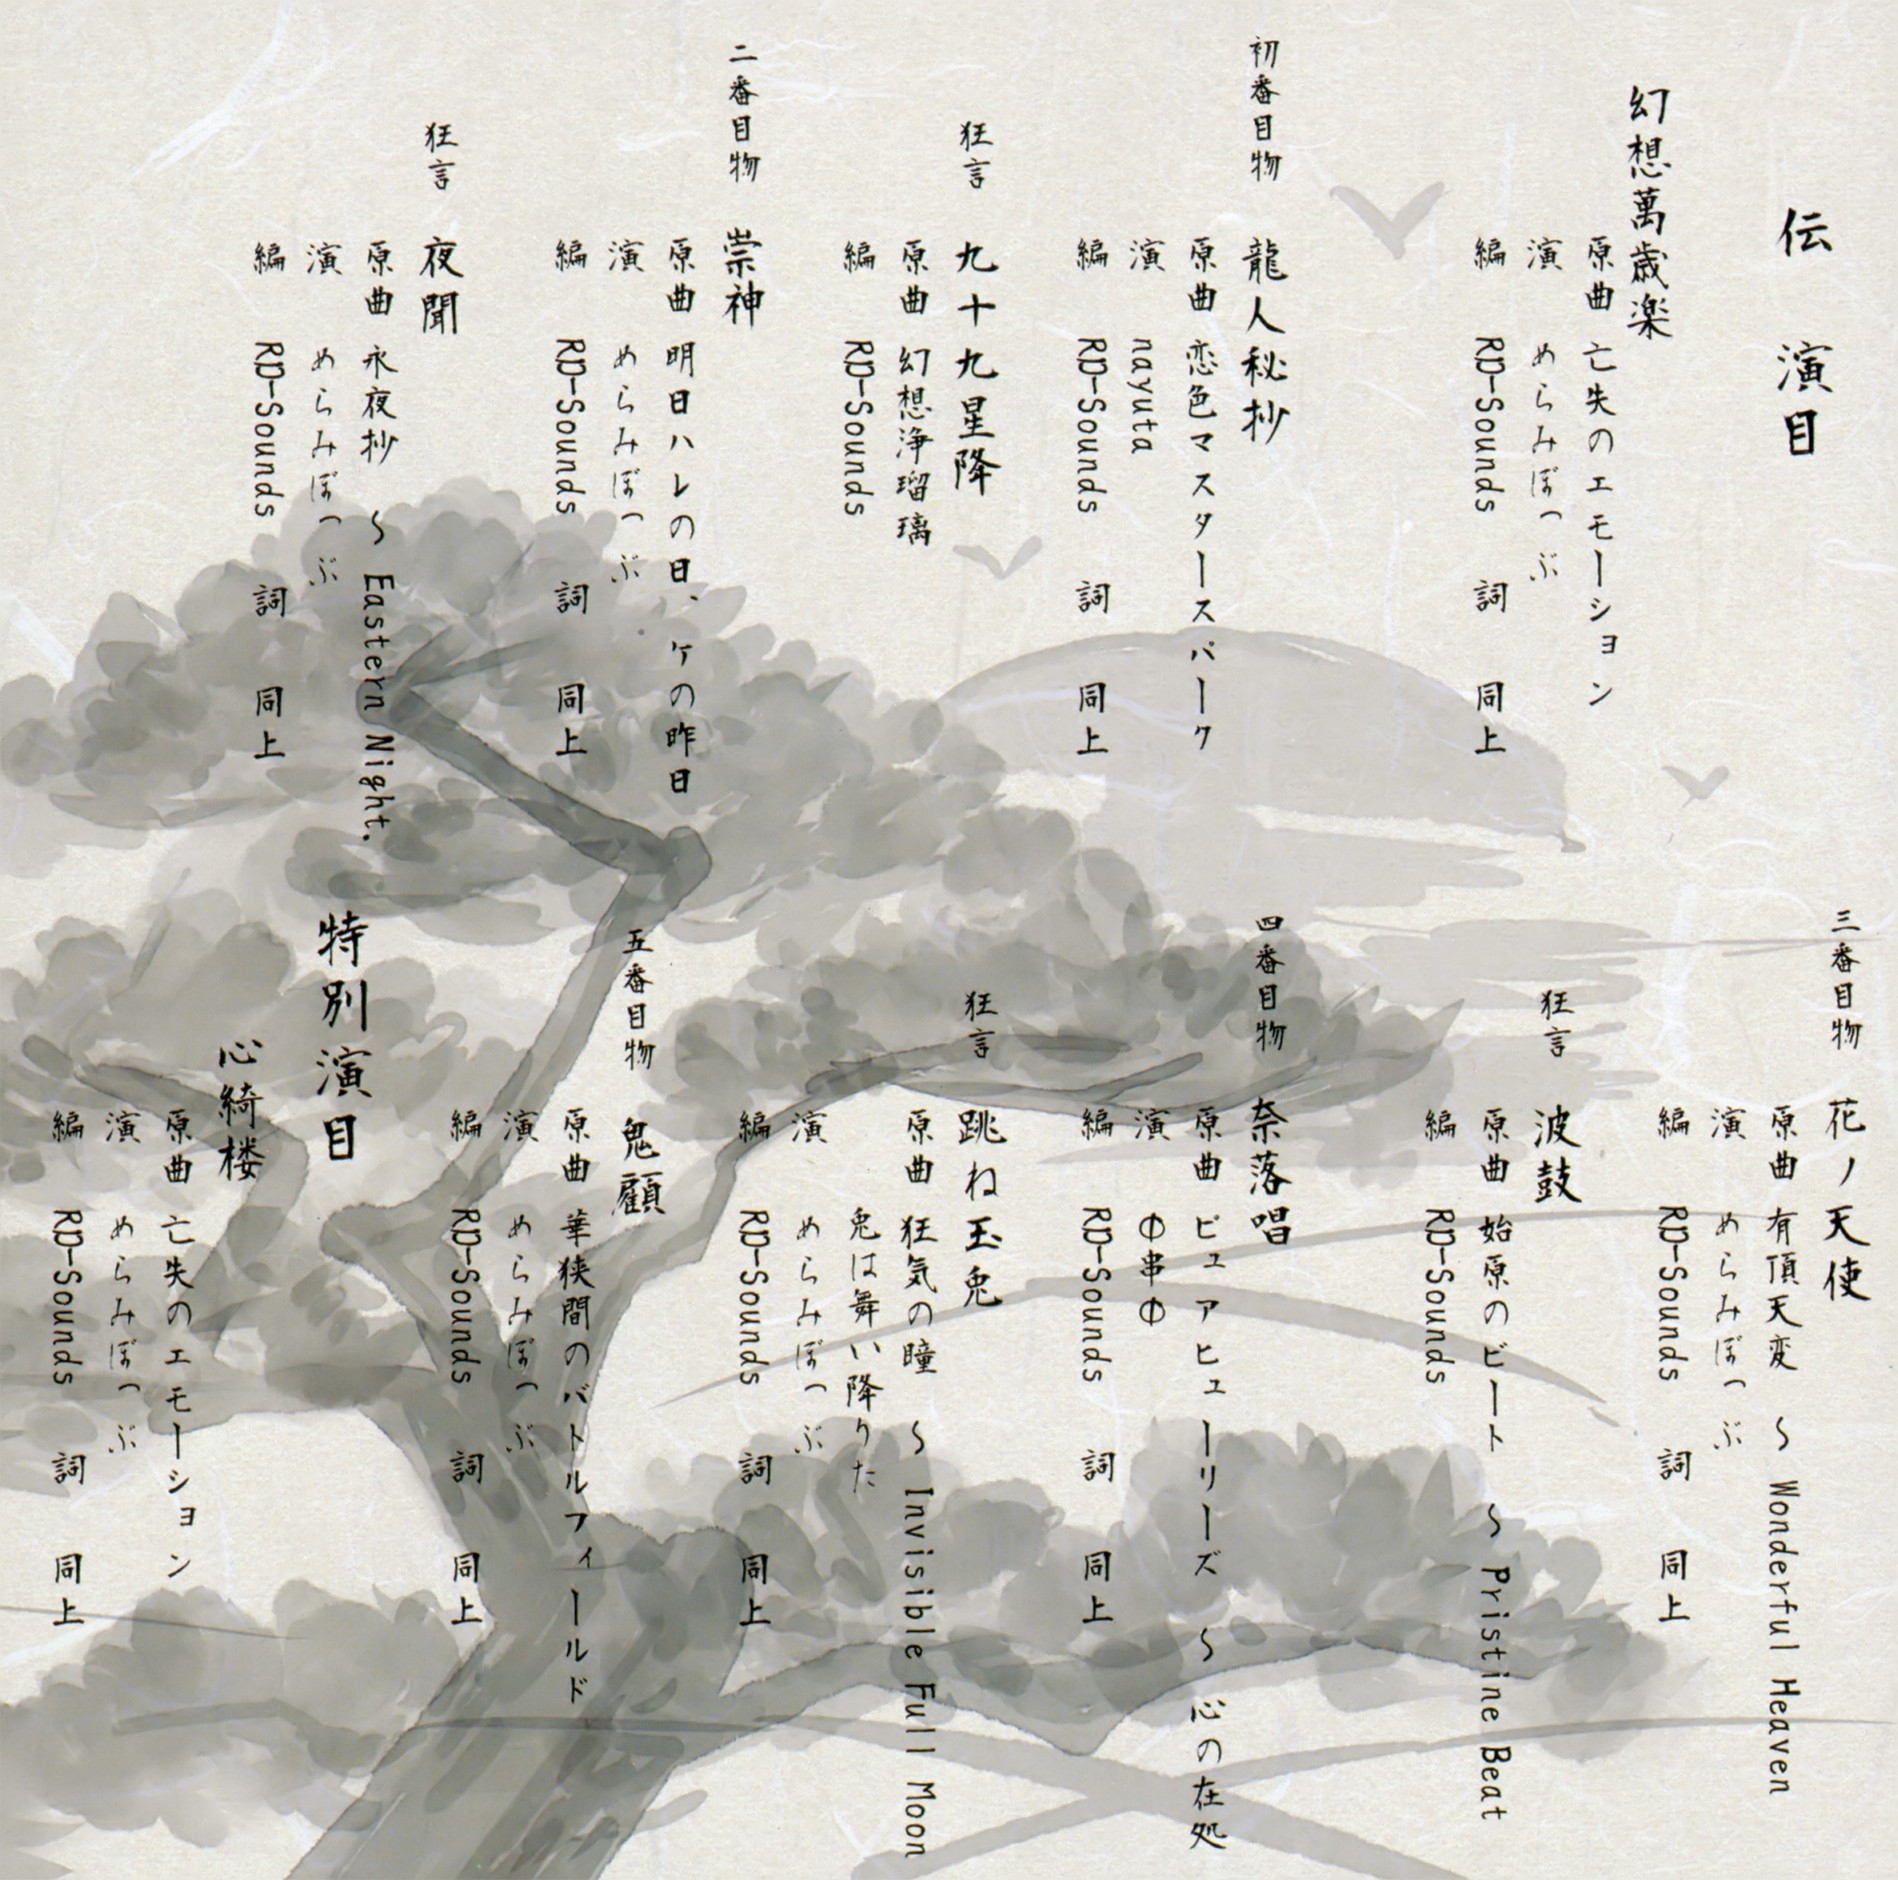 伝　演目
幻想萬歳楽
原曲　亡失のエモーション
演　めらみぽっぷ
編　RD-Sounds　詞　同上
初番目物　龍人秘抄
原曲　恋色マスタースパーク
演　nayuta
編　RD-Sounds　詞　同上
狂言　九十九星降
原曲　幻想浄瑠璃
編　RD-Sounds
二番目物　崇神
原曲　明日ハレの日、ケの昨日
演　めらみぽっぷ
編　RD-Sounds　詞　同上
狂言　夜聞
原曲　永夜抄　～ Eastern Night.
演　めらみぽっぷ
編　RD-Sounds　詞　同上
三番目物　花ノ天使
原曲　有頂天変　～ Wonderful Heaven
演　めらみぽっぷ
編　RD-Sounds　詞　同上
狂言　波鼓
原曲　始原のビート　～ Pristine Beat
編　RD-Sounds
四番目物　奈落唱
原曲　ピュアヒューリーズ　～ 心の在処
演　Φ串Φ
編　RD-Sounds　詞　同上
狂言　跳ね玉兎
原曲　狂気の瞳　～ Invisible Full Moon
兎は舞い降りた
演　めらみぽっぷ
編　RD-Sounds　詞　同上
五番目物　鬼顧
原曲　華狭間のバトルフィールド
演　めらみぽっぷ
編　RD-Sounds　詞　同上
特別演目
心綺楼
原曲　亡失のエモーション
演　めらみぽっぷ
編　RD-Sounds　詞　同上